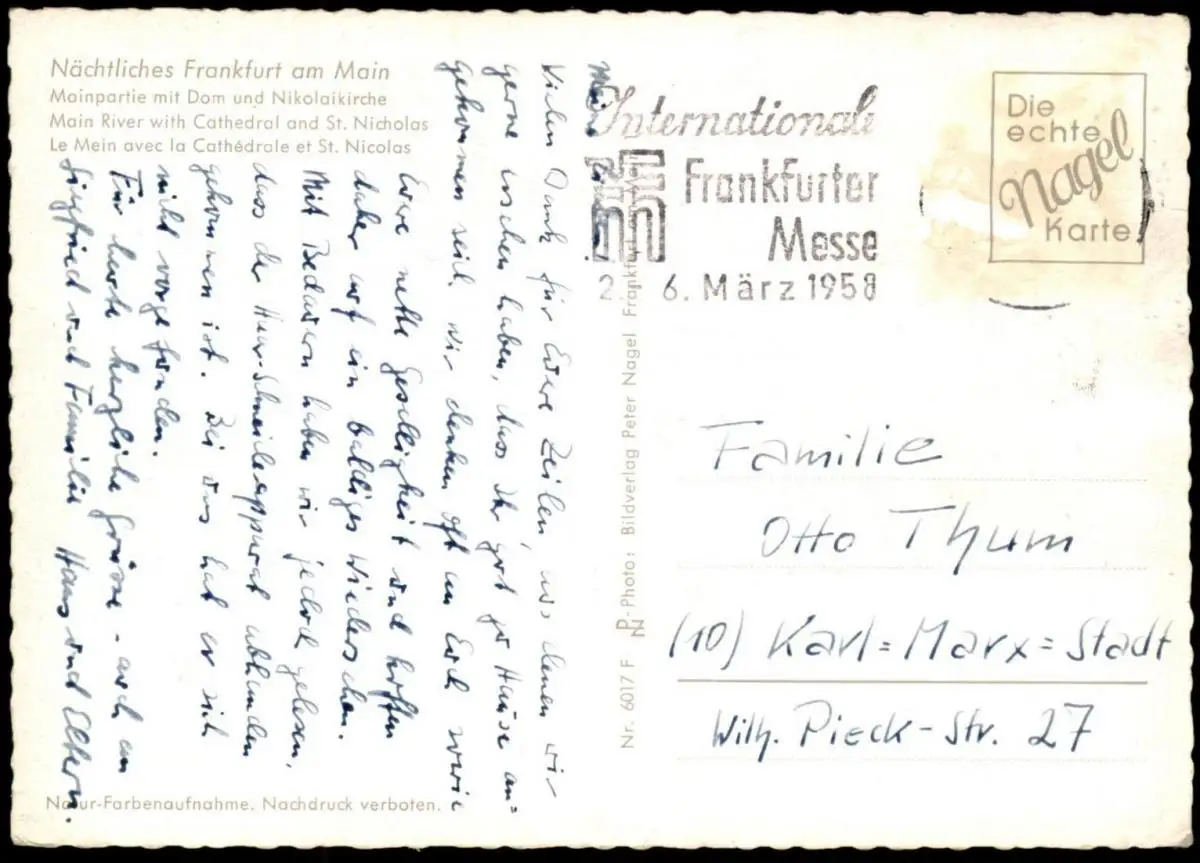 Nächtliches Frankfurt am Main
Mainpartie mit Dom und Nikolaikirche
Main River with Cathedral and St. Nicholas
Le Mein avec la Cathédrale et St. Nicolas
Meine
Vielen Dank für Euere Zeilen, aus denen wir
gerne ersehen haben, dass Ihr gut zu Hause an-
gekommen seid. Wir denken oft an Euch sowie
Eure nette Geselligkeit und hoffen
daher auf ein baldiges Wiedersehen.
Mit Bedauern haben wir jedoch gelesen,
dass der Haar-Schneideapparat abhanden
gekommen ist. Bei uns hat er sich
nicht vorgefunden.
Für heute herzliche Grüsse - auch an
Siegfried und Familie Hans und Eltern.
Natur-Farbenaufnahme. Nachdruck verboten.
Nr. 6017 F PN-Photo: Bildverlag Peter Nagel Frankfurt
Internationale
Frankfurter
Messe
2. 6. März 1958
Die
echte
Nagel
Karte
Familie
Otto Thum
(10) Karl=Marx=Stadt
Wilh. Pieck-Str. 27